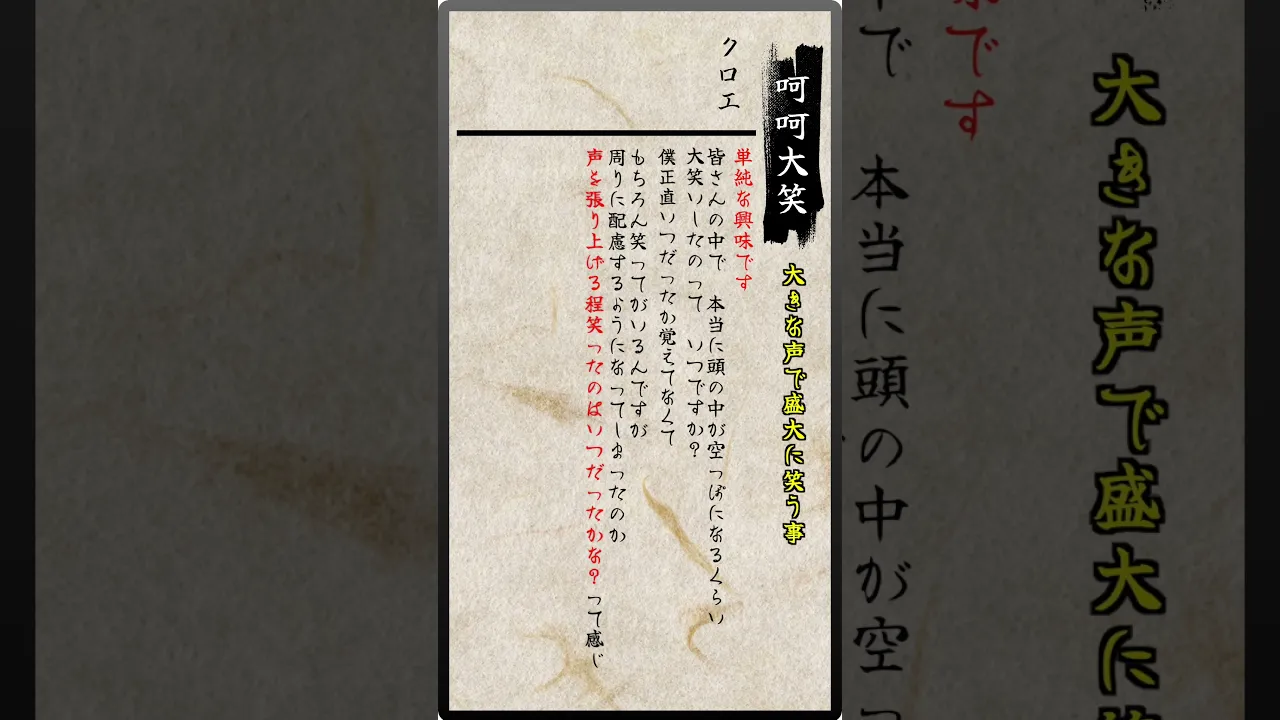 呵呵大笑
大きな声で盛大に笑う事
クロエ
単純な興味です
皆さんの中で　本当に頭の中が空っぽになるくらい
大笑いしたのって　いつですか?
僕正直いつだったか覚えてなくて
もちろん笑ってがいるんですが
周りに配慮するようになってしまったのか
声を張り上げる程笑ったのはいつだったかな?って感じ
大きな声で盛大に
です
で　本当に頭の中が空っ